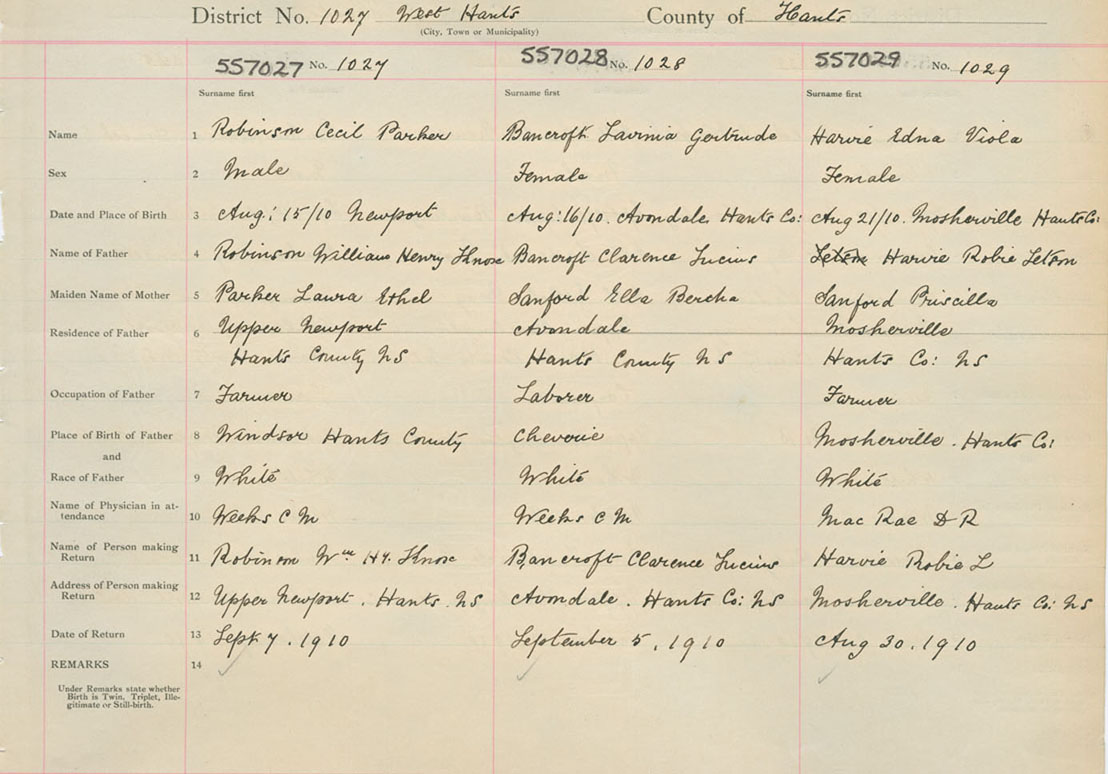 District No. 1027 West Hants County of Hants
(City, Town or Municipality)
557027 No. 1027 557028 No. 1028 557029 No. 1029
Surname first Surname first Surname first
Name 1 Robinson Cecil Parker Bancroft Lavinia Gertrude Harvie Edna Viola
Sex 2 Male Female Female
Date and Place of Birth 3 Aug: 15/10 Newport Aug: 16/10. Avondale Hants Co: Aug 21/10. Mosherville Hants Co:
Name of Father 4 Robinson William Henry Knox Bancroft Clarence Lucius Letson Harvie Robie Letson
Maiden Name of Mother 5 Parker Laura Ethel Sanford Ella Bercha Sanford Priscilla
Residence of Father 6 Upper Newport Avondale Mosherville
Hants County NS Hants County NS Hants Co: NS
Occupation of Father 7 Farmer Laborer Farmer
Place of Birth of Father 8 Windsor Hants County Cheverie Mosherville. Hants Co:
and
Race of Father 9 White White White
Name of Physician in at-
tendance 10 Weeks C M Weeks C M Mac Rae D R
Name of Person making
Return 11 Robinson Wm Hy. Knox Bancroft Clarence Lucius Harvie Robie L
Address of Person making
Return 12 Upper Newport. Hants. NS Avondale. Hants Co: NS Mosherville. Hants Co: NS
Date of Return 13 Sept 7. 1910 September 5. 1910 Aug 30. 1910
REMARKS 14
Under Remarks state whether
Birth is Twin, Triplet, Ille-
gitimate or Still-birth.